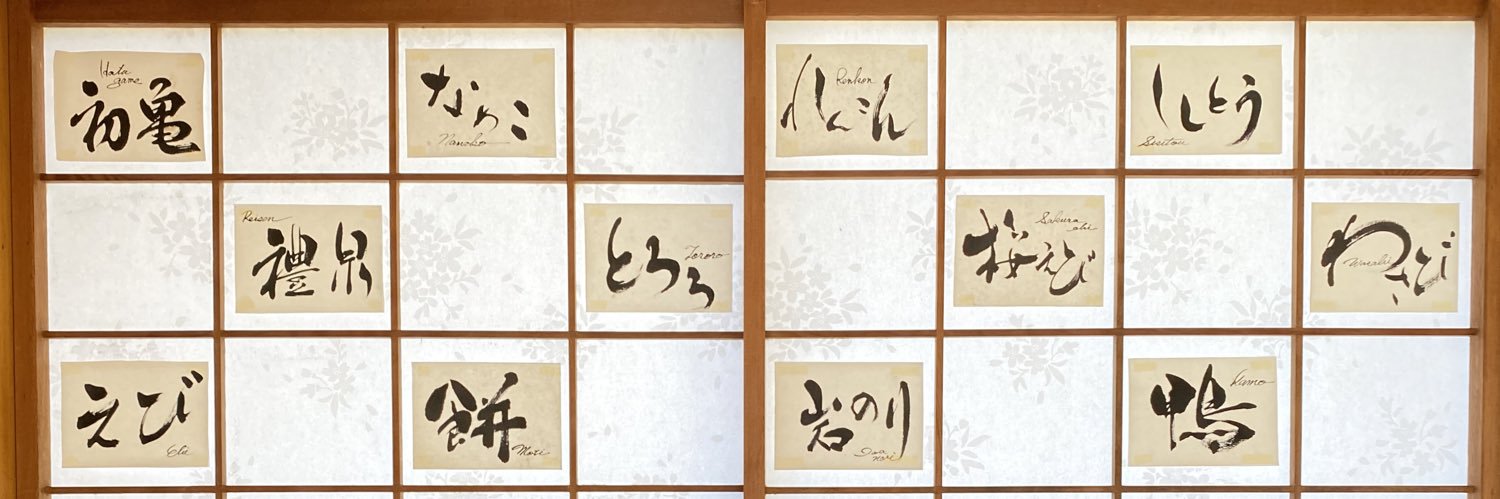 Hatsu
game
初亀
なめこ
Nameko
Renkon
れんこん
ししとう
Sisitou
Reisen
禮泉
とろろ
Tororo
Sakura
ebi
桜えび
わさび
Wasabi
えび
Ebi
餅
Moti
岩のり
Iwa
nori
Kamo
鴨